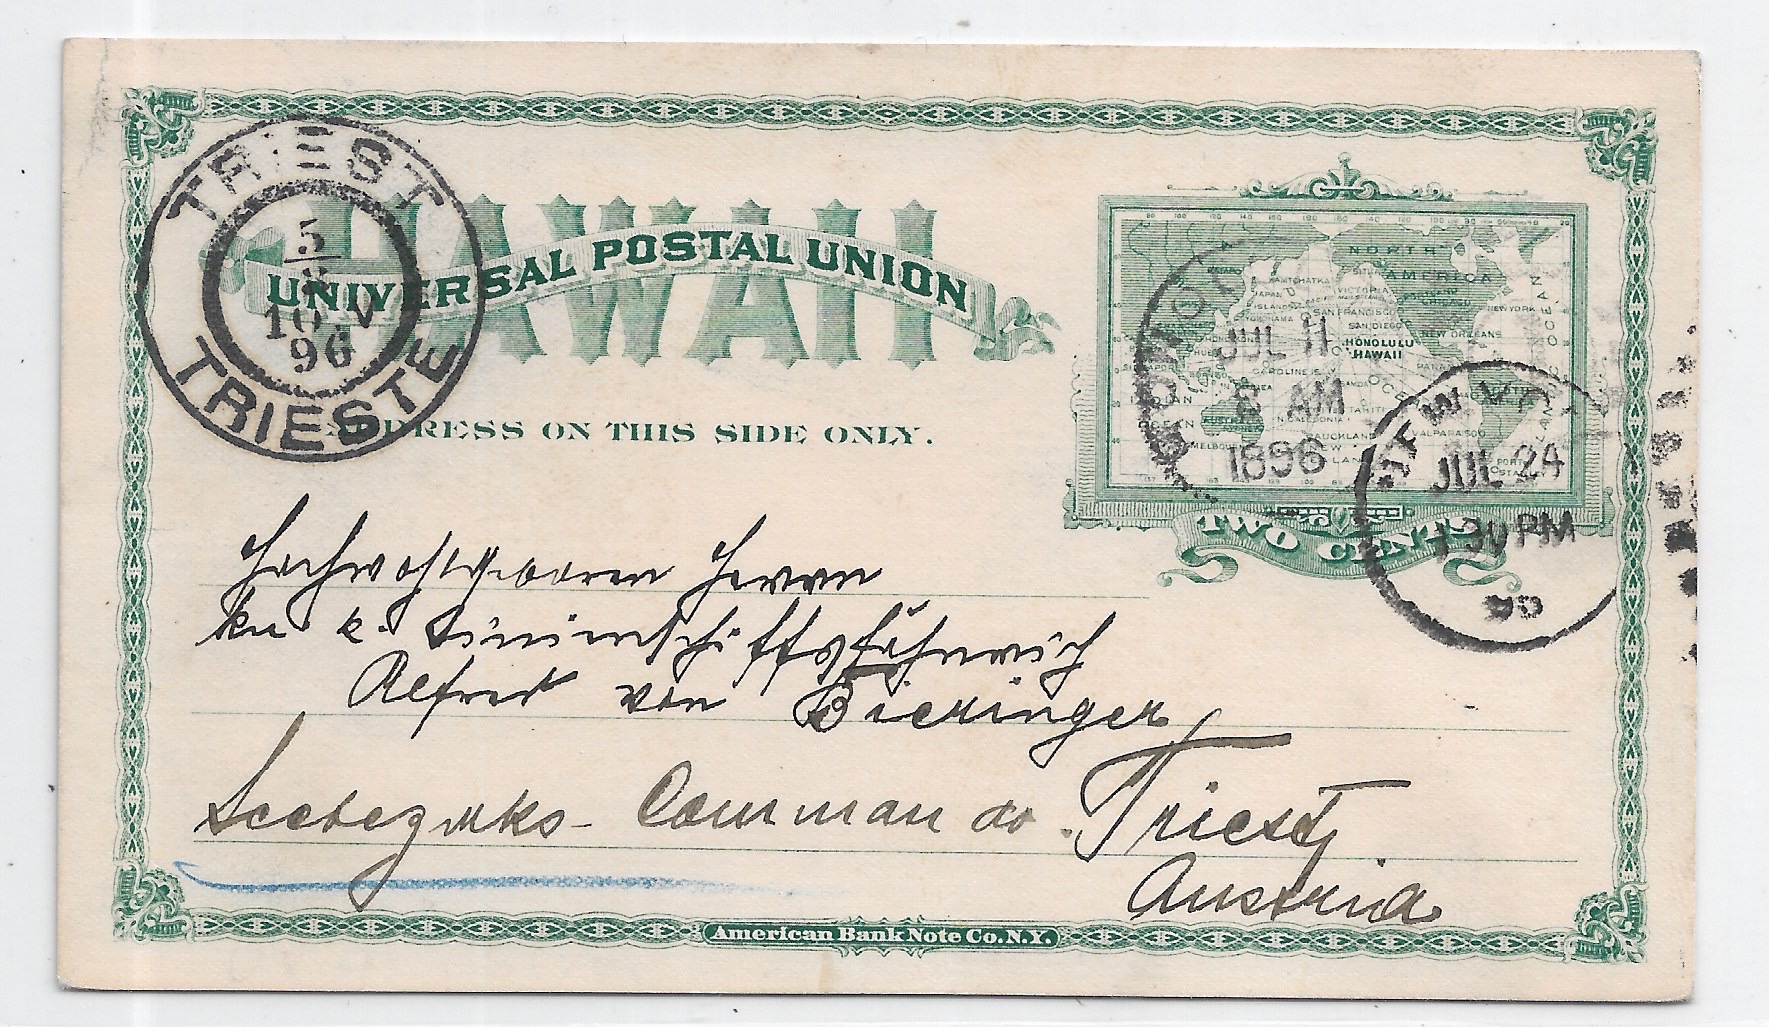 HAWAII
UNIVERSAL POSTAL UNION
ADDRESS ON THIS SIDE ONLY.
TRIEST
5
8
10 V
96
TRIESTE
NORTH
AMERICA
KAMTCHATKA
VICTORIA
JAPAN
ISLANDS
SAN FRANCISCO
SAN DIEGO
NEW YORK
NEW ORLEANS
HONOLULU
HAWAII
CAROLINE IS.
PANAMA
TAHITI
N.CALEDONIA
AUCKLAND
VALPARAISO
MELBOURNE
OCEAN
TWO CENTS
JUL 11
8 AM
1896
NEW YO
JUL 24
1 30 PM
96
Hochwohlgeboren Herrn
k. u. k. Linienschiffsfähnrich
Alfred von Bieringer
Seebezirks-Commando. Triest
Austria
American Bank Note Co. N.Y.